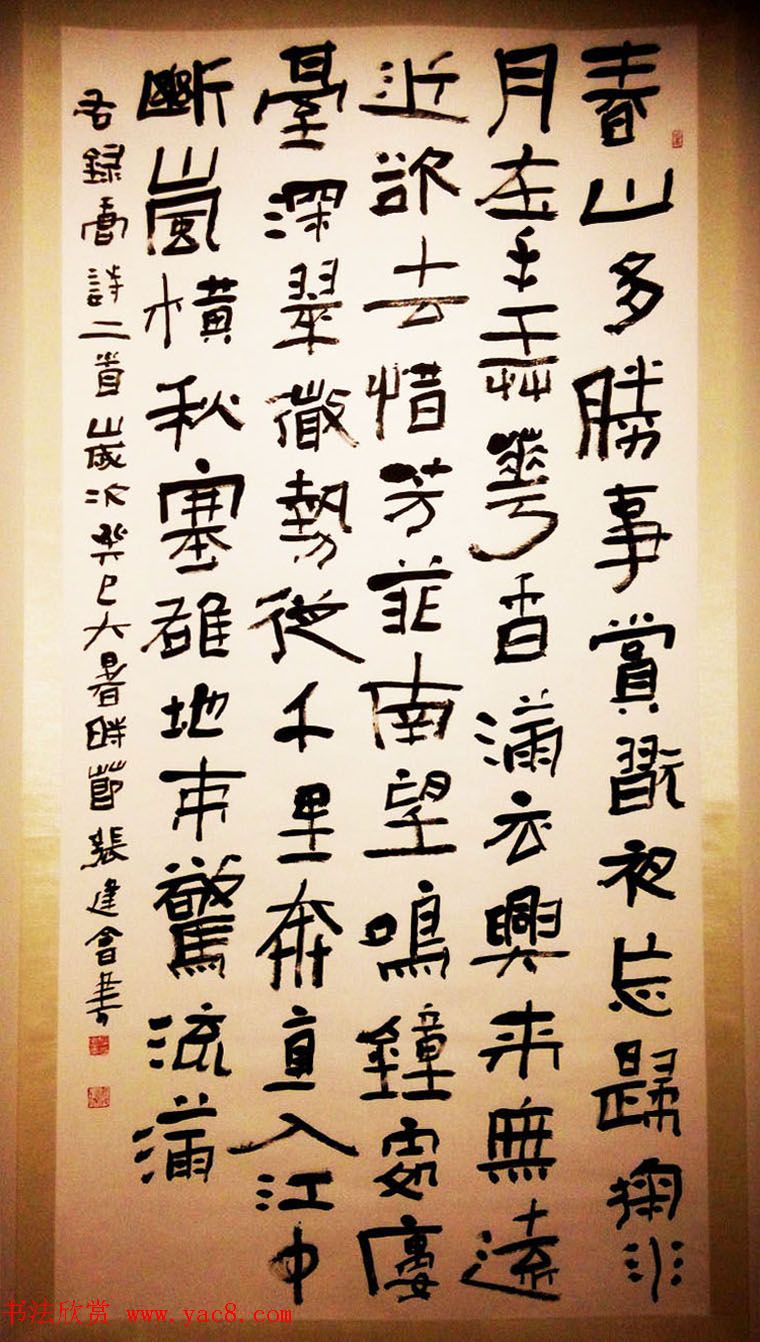 春山多勝事賞翫夜忘歸掬水
月在手弄華香滿衣興來無遠
近欲去惜芳菲南望鳴鐘處廔
臺深翠微勢從千里奔直入江中
斷嵐橫秋塞雄地束驚流滿
右錄唐詩二首歲次癸巳大暑時節張建會書
书法欣赏 www.yac8.com